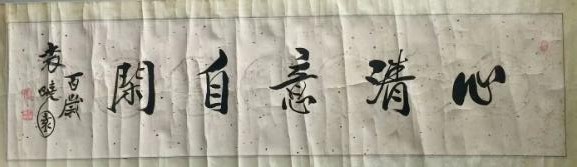 心清意自閑
百歲
袁曉園